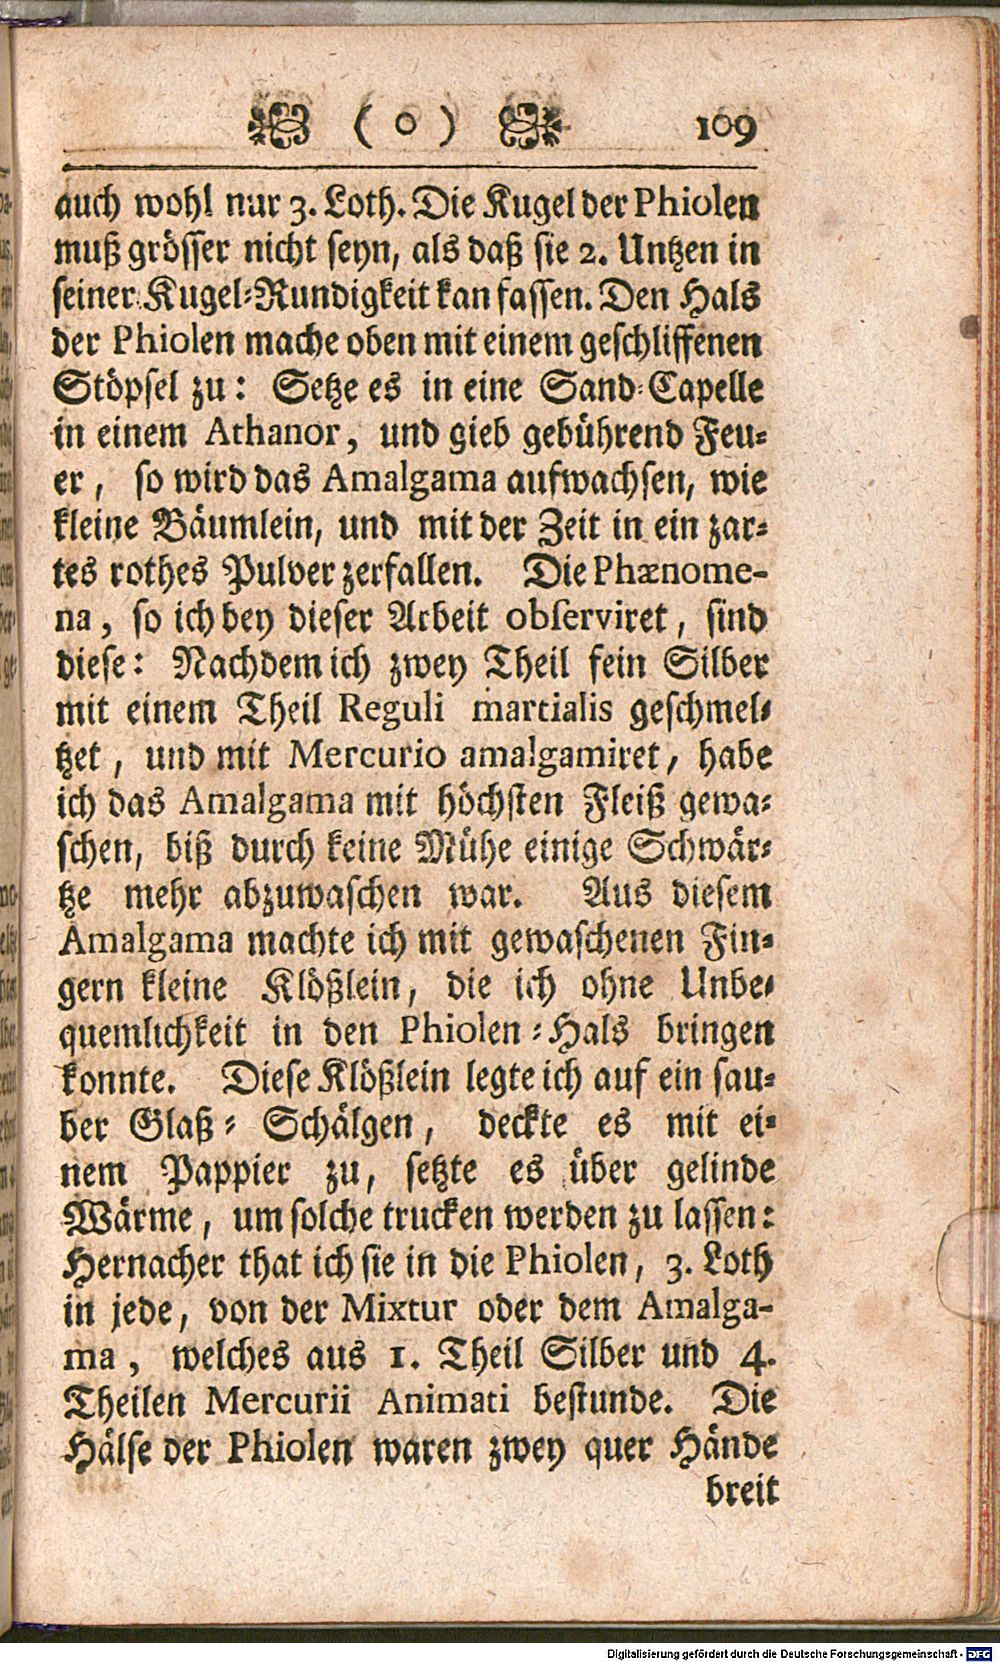 ( o ) 109
auch wohl nur 3. Loth. Die Kugel der Phiolen
muß grösser nicht seyn, als daß sie 2. Untzen in
seiner Kugel-Rundigkeit kan fassen. Den Hals
der Phiolen mache oben mit einem geschliffenen
Stöpsel zu: Setze es in eine Sand-Capelle
in einem Athanor, und gieb gebührend Feu-
er, so wird das Amalgama aufwachsen, wie
kleine Bäumlein, und mit der Zeit in ein zar-
tes rothes Pulver zerfallen. Die Phænome-
na, so ich bey dieser Arbeit observiret, sind
diese: Nachdem ich zwey Theil fein Silber
mit einem Theil Reguli martialis geschmel-
tzet, und mit Mercurio amalgamiret, habe
ich das Amalgama mit höchsten Fleiß gewa-
schen, biß durch keine Mühe einige Schwär-
tze mehr abzuwaschen war. Aus diesem
Amalgama machte ich mit gewaschenen Fin-
gern kleine Klößlein, die ich ohne Unbe-
quemlichkeit in den Phiolen-Hals bringen
konnte. Diese Klößlein legte ich auf ein sau-
ber Glaß-Schälgen, deckte es mit ei-
nem Pappier zu, setzte es über gelinde
Wärme, um solche trucken werden zu lassen:
Hernacher that ich sie in die Phiolen, 3. Loth
in jede, von der Mixtur oder dem Amalga-
ma, welches aus 1. Theil Silber und 4.
Theilen Mercurii Animati bestunde. Die
Hälse der Phiolen waren zwey quer Hände
breit
Digitalisierung gefördert durch die Deutsche Forschungsgemeinschaft - DFG